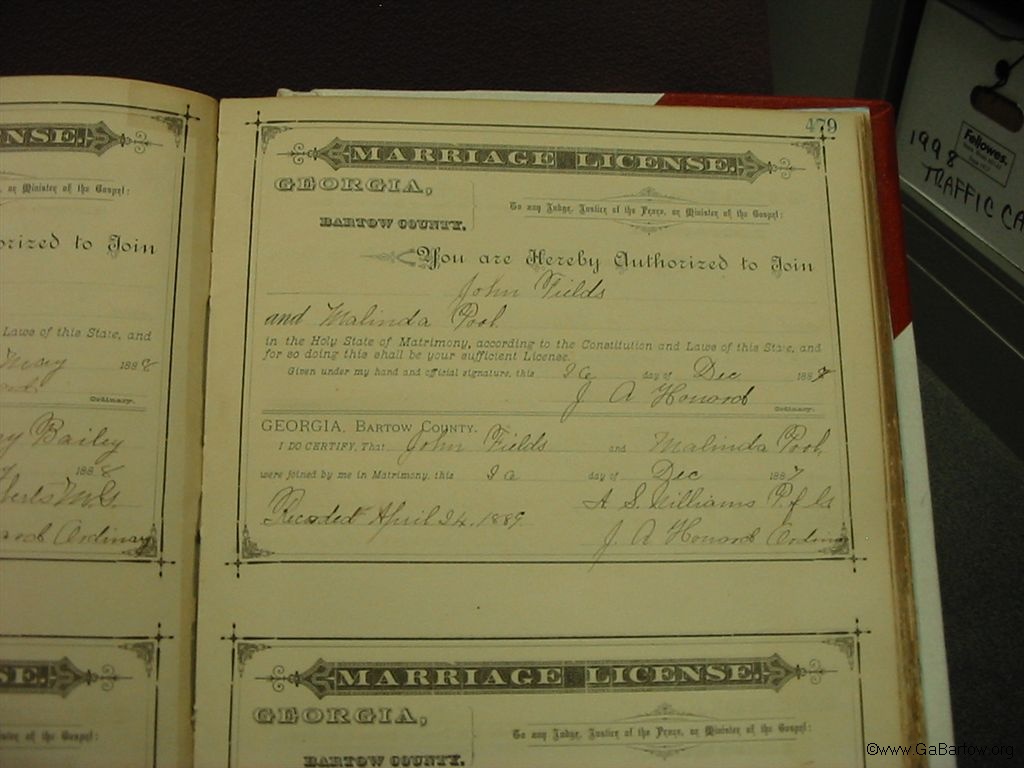 NSE.
, or Minister of the Gospel:
orized to Join
Laws of this State, and
May 1888
Ordinary.
Bailey
1888
Ordinary
SE.
ister of the Gospel:
479
MARRIAGE LICENSE.
GEORGIA,
BARTOW COUNTY.
To any Judge, Justice of the Peace, or Minister of the Gospel:
You are Hereby Authorized to Join
John Fields
and Malinda Pool
in the Holy State of Matrimony, according to the Constitution and Laws of this State, and
for so doing this shall be your sufficient License.
Given under my hand and official signature, this day of Dec 1887
J A Howard
Ordinary.
GEORGIA, BARTOW COUNTY.
I DO CERTIFY, That John Fields and Malinda Pool
were joined by me in Matrimony, this day of Dec 1887
A. S. Williams
Recorded April 24, 1889
J. A Howard Ordinary
MARRIAGE LICENSE.
GEORGIA,
BARTOW COUNTY.
To any Judge, Justice of the Peace, or Minister of the Gospel:
Fellowes.
1998
TRAFFIC CA
©www.GaBartow.org